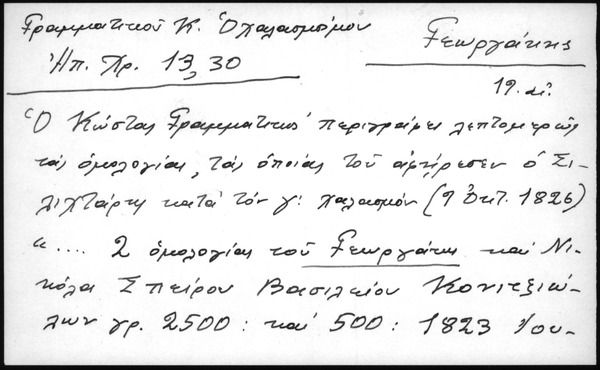 Γραμματικοῦ Κ. Ὁ χαλασμὸς μου
Ἠπ. Χρ. 13, 30
Γεωργάκης
19. αἰ.
Ὁ Κώστας Γραμματικὸς περιγράφει λεπτομερῶς
τὰς ὁμολογίας, τὰς ὁποίας τοῦ ἀφῄρεσεν ὁ Σι-
λιχτάρης κατὰ τὸν γ! χαλασμὸν (9 Ὀκτ. 1826)
".... 2 ὁμολογίας τοῦ Γεωργάκη καὶ Νι-
κόλα Σπείρου Βασιλείου Κονιτζιώ-
λων γρ. 2500: καὶ 500: 1823 Ἰου-